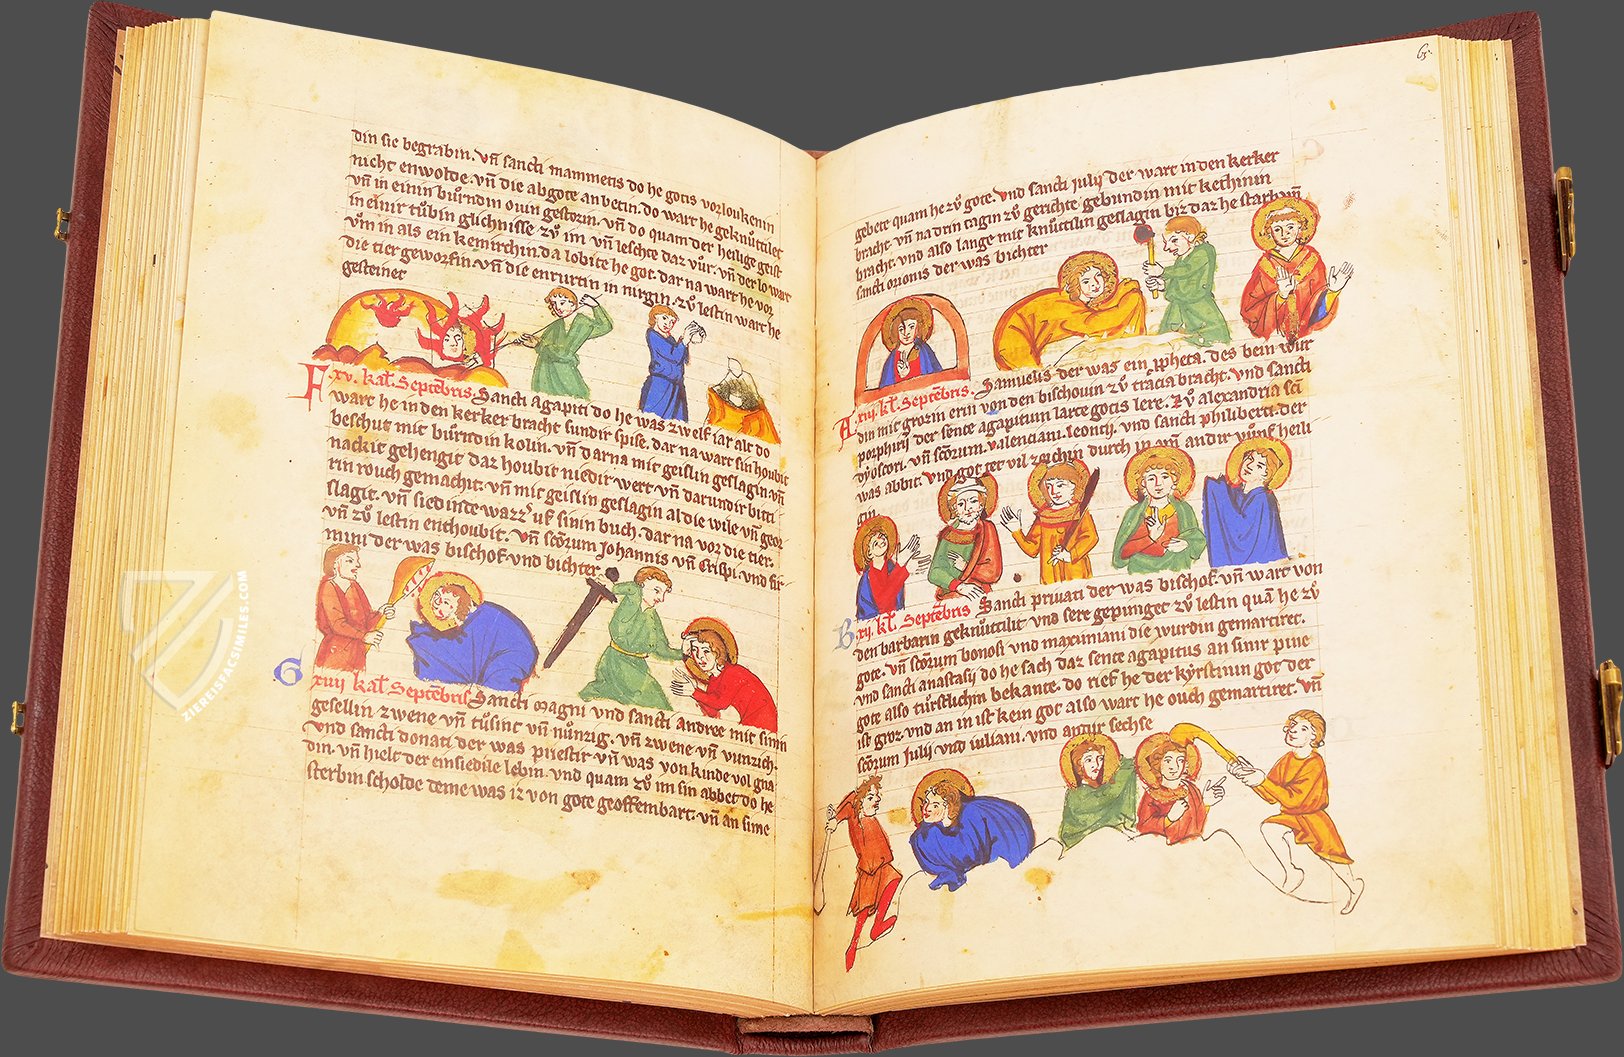 din sie begrabin. vn̄ sancti mammetis do he gotis vorloukenin
nicht enwolde. vn̄ die abgote an betin. do wart he geknůttilet
vn̄ in einin bůrndin ovin gestozin. vn̄ do quam der heilige geist
in einir tůbin glichnisse zů im vn̄ leschte daz vůr. vn̄ der lo wart
vm in als ein kemirchin. da lobite he got. dar na wart he vor
die tier geworfin. vn̄ die enrurtin in nirgin. zů lestin wart he
gesteinet
F xv. kal. Septēbris. Sancti agapiti do he was zwelf iar alt do
wart he in den kerker bracht sundir spise. dar na wart sin houbit
beschut mit bůrndin kolin. vn̄ darna mit geislin geslagin. vn̄
nackit gehengit daz houbit niedir wert vn̄ darundir bitti
rin rouch gemachit. vn̄ mit geislin geslagin al die wile vn̄ geor
slagit. vn̄ siedinde wazz' uf sinin buch. dar na vor die tier.
vn̄ zů lestin enthoubit. vn̄ sc̄orum Johannis vn̄ Crispi. vnd fir
mini der was bischof. vnd bichter.
G xvi kal. Septēbris Sancti Magni vnd sancti andree mit sinin
gesellin zwene vn̄ tůsint vn̄ nůnzig. vn̄ zwene vn̄ vunzich.
vnd sancti donati der was priestir vn̄ was von kinde vol gna
din. vn̄ hielt der einsiedile lebin. vnd quam zů im sin abbet do he
sterbin scholde deme was iz von gote geoffembart. vn̄ an sime
65.
gebete quam he zů gote. vnd sancti iulij der wart in den kerker
bracht. vn̄ na drin tagin zů gerichte gebundin mit kethinin
bracht. vnd also lange mit knůttilin geslagin biz daz he starb. vn̄
sancti Avionis der was bichter
A xiij. kl. Septēbris. Samuelis der was ein ꝓpheta. des bein wur
din mit grozin erin von den bischouin zů tracia bracht. vnd sancti
porphirij der sente agapitum larte gotis lere. zů alexandria sc̄i
dyoscori. vn̄ sc̄orum. valenciani. leontij. vnd sancti philiberti. der
was abbit. vnd got tet vil zeichin durch in vn̄ andir vůnf heili
gin
B xij. kl. Septēbris Sancti priuati der was bischof. vn̄ wart von
den barbarin geknůttilit vnd sere gepiniget zů lestin quā he zů
gote. vn̄ sc̄orum bonosi vnd maximiani die wurdin gemartiret.
vnd sancti anastasij do he sach daz sente agapitus an sinir pine
gote also tůrstlichin bekante. do rief he der kyrstinin got der
ist groz. vnd an in ist kein got also wart he ouch gemartiret. vn̄
sc̄orum Iulij vnd iuliani. vnd andir sechse
ZIEREISFACSIMILES.COM